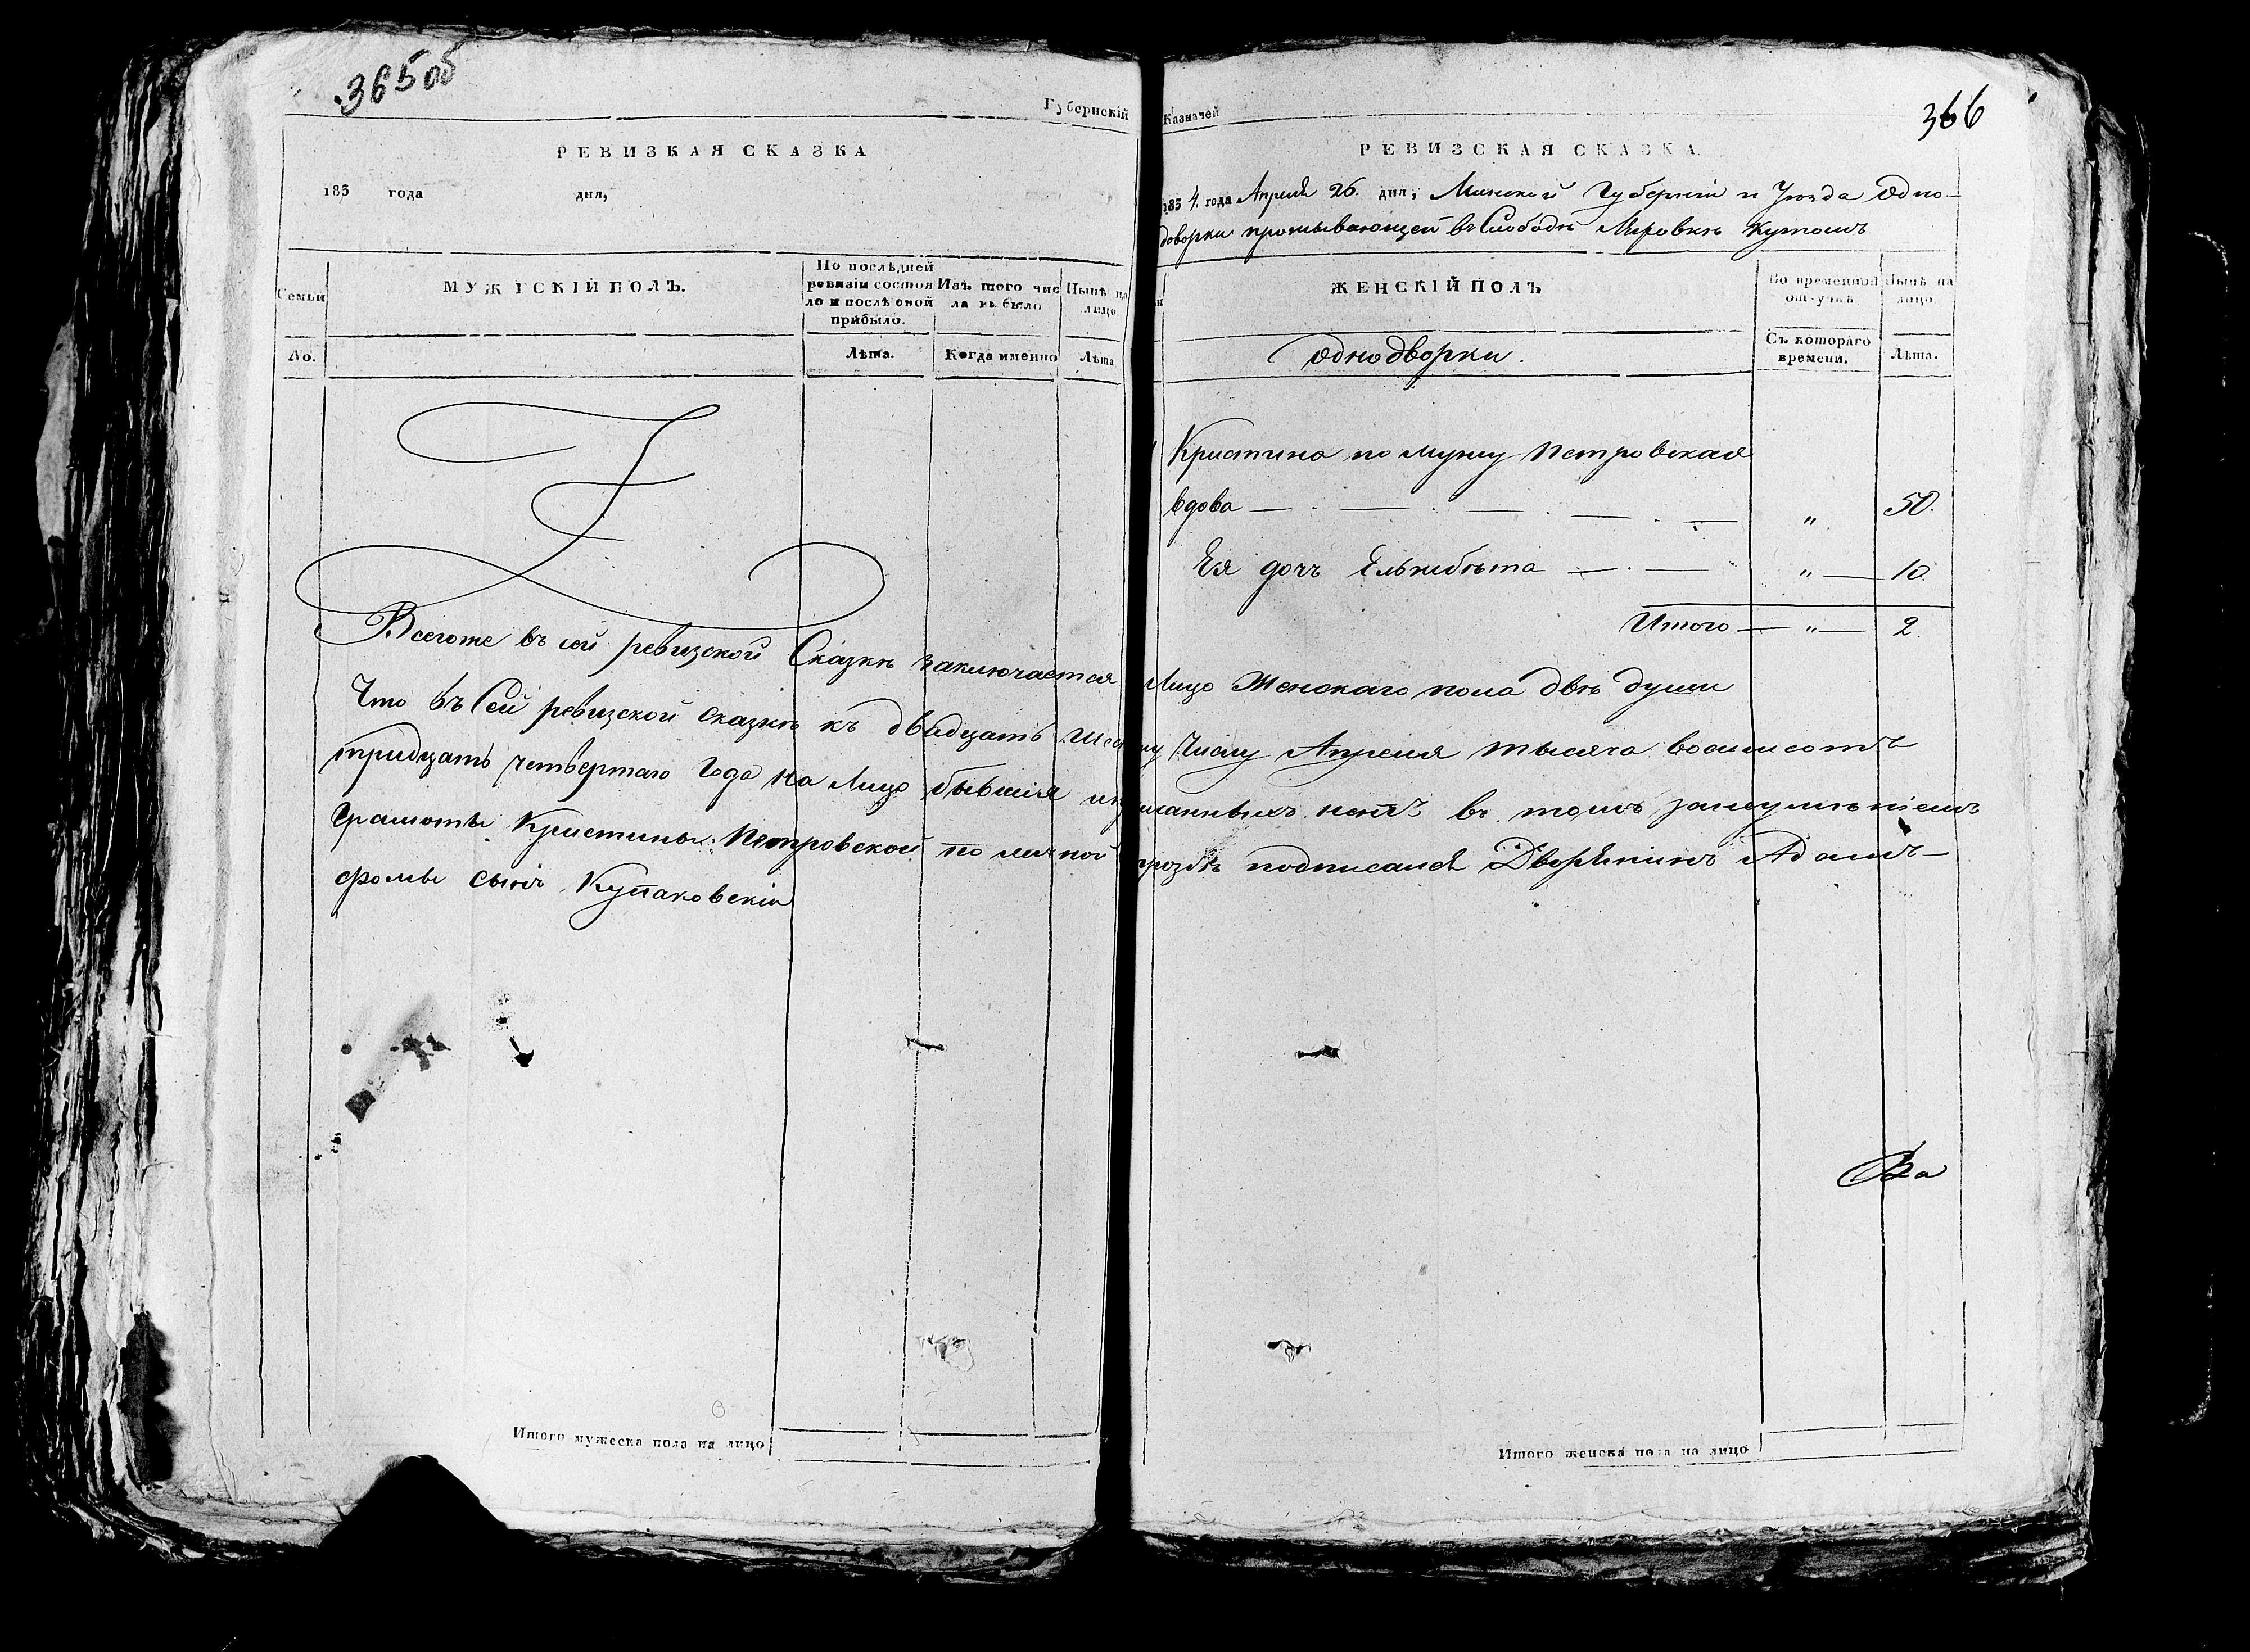 365 об
Губернскій
РЕВИЗКАЯ СКАЗКА
183 года дня,
Семьи
МУЖЕСКІЙ ПОЛЪ.
По послѣдней ревизіи состояло и послѣ оной прибыло.
Изъ того числа выбыло
Нынѣ на лицо.
No.
Лѣта.
Когда именно
Лѣта
Казначей
366
РЕВИЗСКАЯ СКАЗКА
1834. года Апреля 26. дня, Минской Губерніи и Уѣзда Одно-
дворки проживающей въ Слободѣ
ЖЕНСКІЙ ПОЛЪ
Во временной отлучкѣ.
Нынѣ на лицо
однодворки.
Съ котораго времени.
Лѣта.
Кристина по мужу Петровская
вдова — . — . — . — . — " 50.
Ея дочь — . — " — 10.
Итого — " — 2.
Всегоже въ сей ревизской Сказкѣ заключается Лицо Женскаго пола двѣ души
Что въ Сей ревизской сказкѣ къ двадцать Числу Апреля тысяча восимсотъ
тридцать четвертаго Года на Лицо бывшія нетъ въ томъ
Грамоты Кристины Петровской по личной прозбѣ подписался Дворянинъ Адамъ
Фомы сынъ
Ва
Итого мужеска пола на лицо
Итого женска пола на лицо